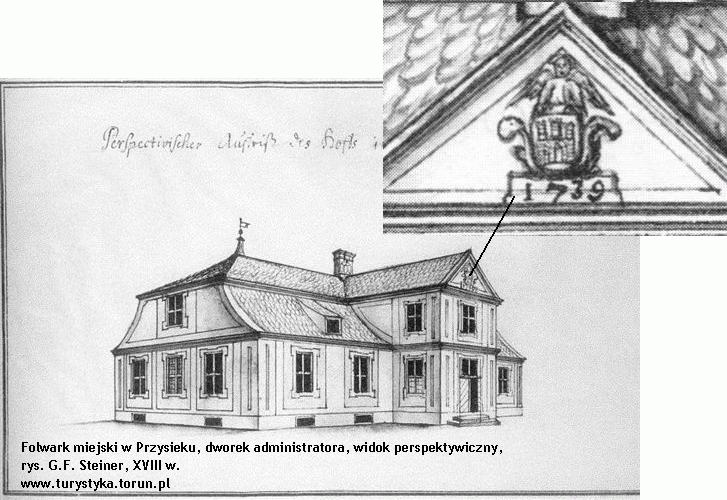 Perspectivischer Aufriß des Hofes
1739
Folwark miejski w Przysieku, dworek administratora, widok perspektywiczny,
rys. G.F. Steiner, XVIII w.
www.turystyka.torun.pl